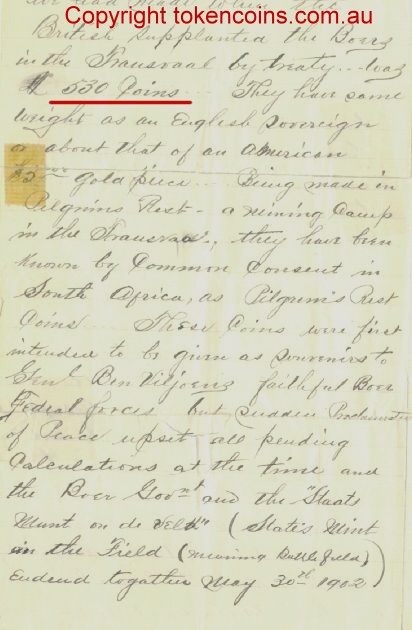 Copyright tokencoins.com.au
we had made when the
British supplanted the Boers
in the Transvaal by treaty... was
530 Coins... They have same
weight as an English sovereign
or about that of an American
$5.00 gold piece... Being made in
Pilgrims Rest - a mining Camp
in the Transvaal., they have been
known by Common Consent in
South Africa, as Pilgrim's Rest
Coins These Coins were first
intended to be given as souvenirs to
Genl Ben Viljoens faithful Boer
Federal forces but sudden Proclamation
of Peace upset all pending
Calculations at the time and
the Boer Govnt and the "Staats
Munt on de Veld" (State's Mint
in the Field (meaning Battlefield))
Endend togather May 30th 1902